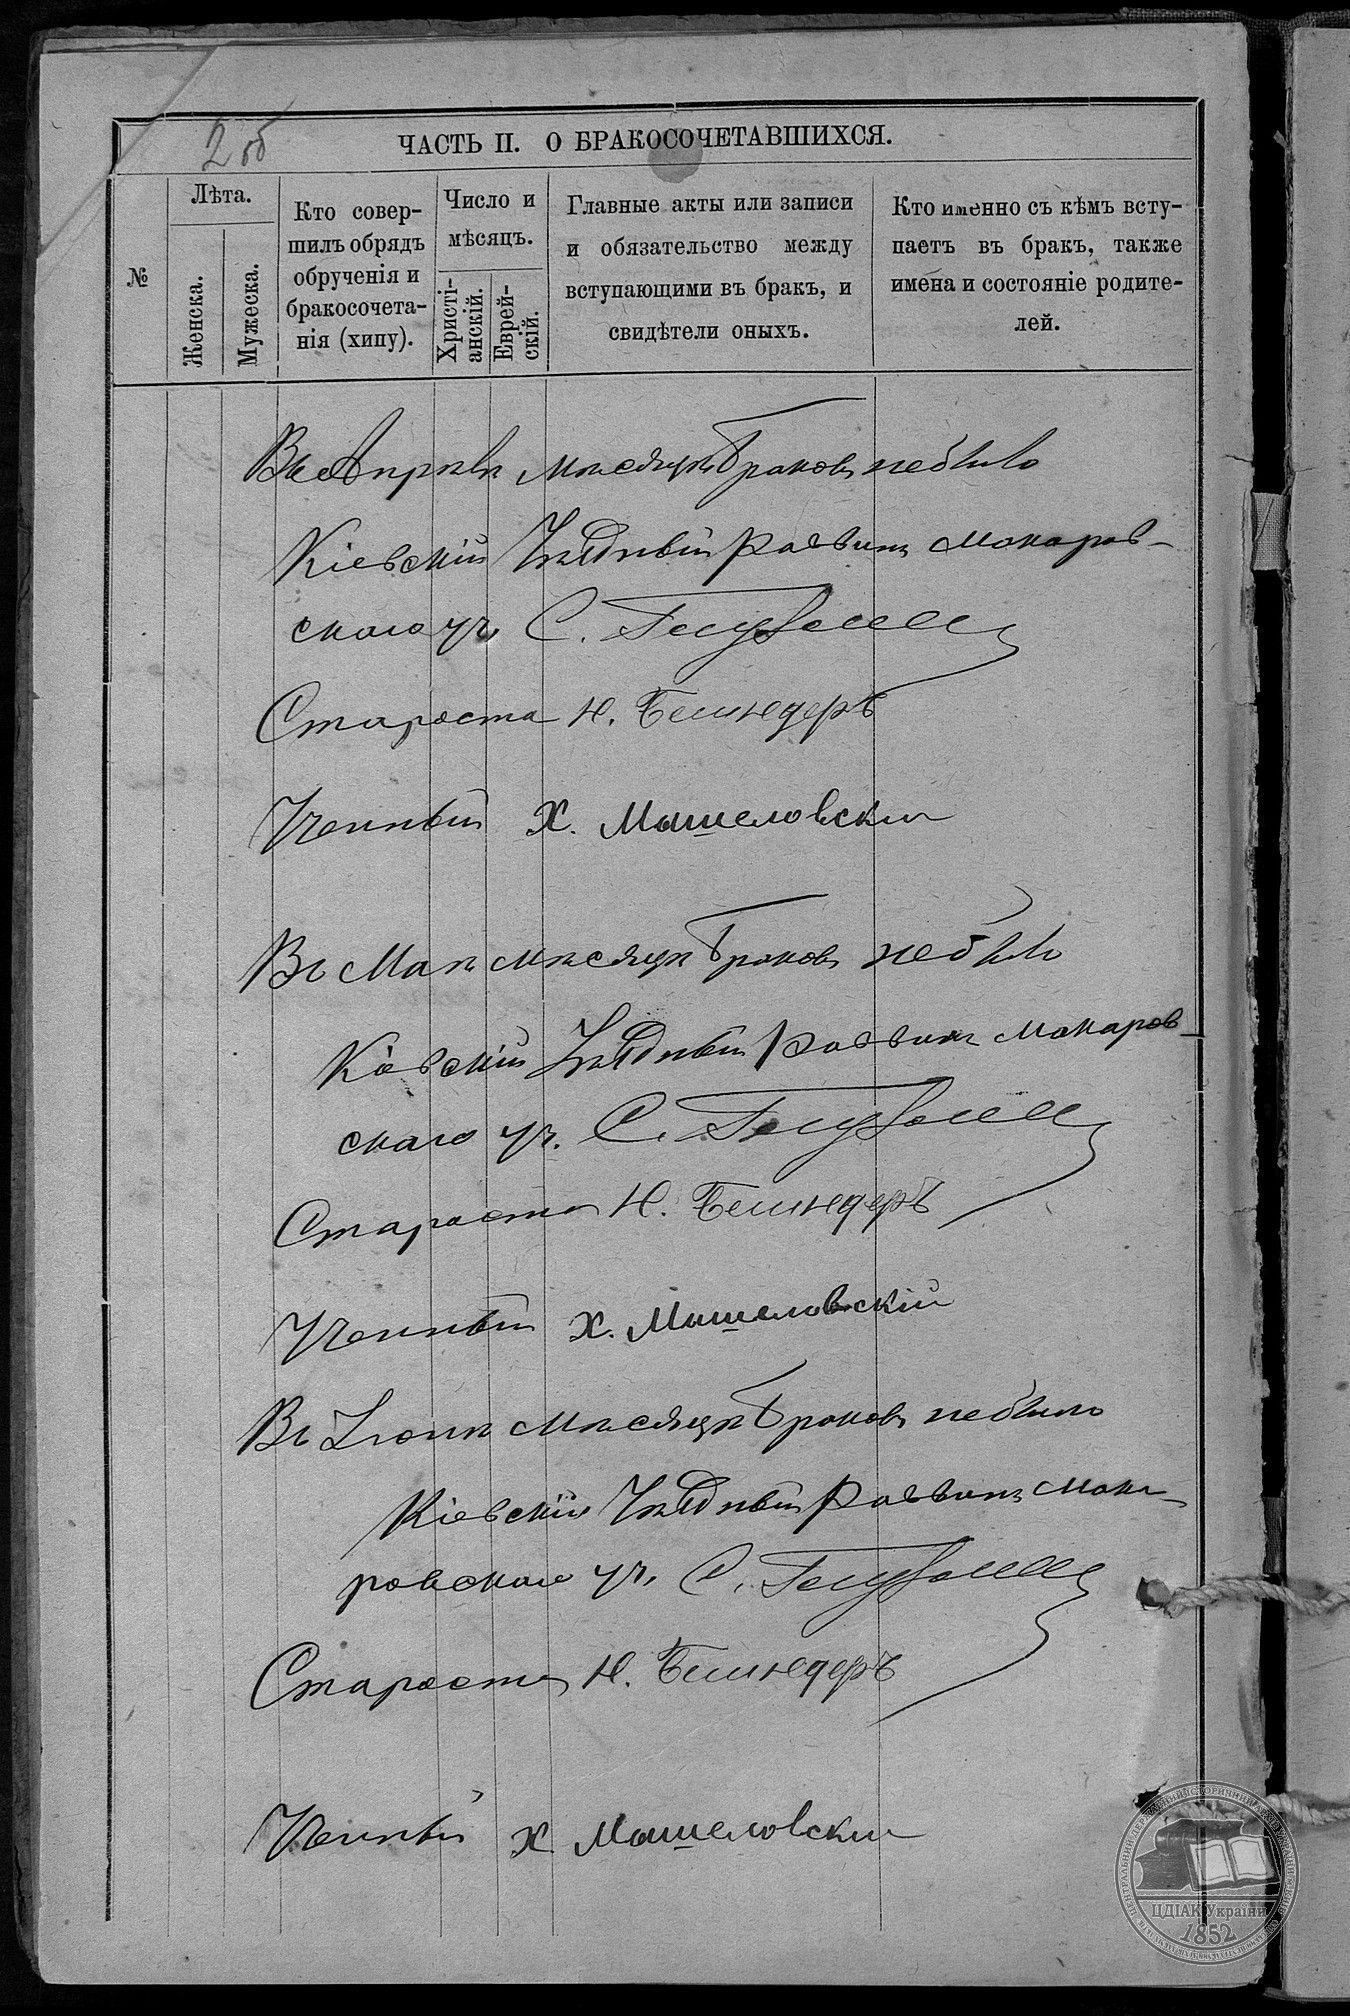 2 об
ЧАСТЬ II. О БРАКОСОЧЕТАВШИХСЯ.
№
Лѣта.
Женска.
Мужеска.
Кто совер-
шилъ обрядъ
обрученія и
бракосочета-
нія (хипу).
Число и
мѣсяцъ.
Христі-
анскій.
Еврей-
скій.
Главные акты или записи
и обязательство между
вступающими въ бракъ, и
свидѣтели оныхъ.
Кто именно съ кѣмъ всту-
паетъ въ бракъ, также
имена и состояніе родите-
лей.
Въ Апрѣлѣ мѣсяцѣ браковъ небыло
Кіевскій Уѣздный Раввинъ Макаров-
скаго уч. С.
Староста Н.
Ученный Х. Машеловскій
Въ Маѣ мѣсяцѣ браковъ небыло
Кіевскій Уѣздный Раввинъ Макаров-
скаго уч. С.
Староста Н.
Ученный Х. Машеловскій
Въ Іюнѣ мѣсяцѣ браковъ небыло
Кіевскій Уѣздный Раввинъ Мака-
ровскаго уч. С.
Староста Н.
Ученный Х. Машеловскій
ЦДІАК України
1852